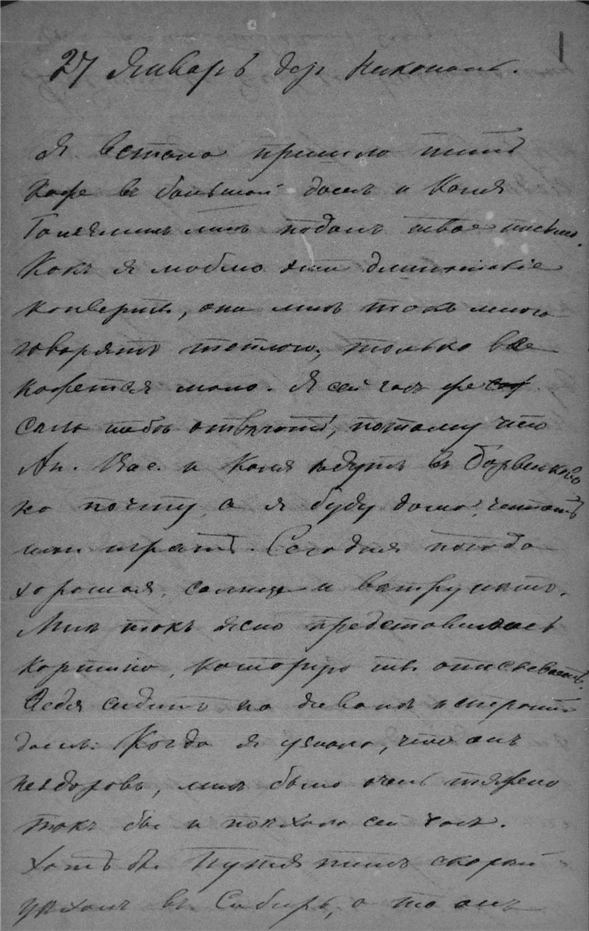 27 Январь дер. Никополь.
Я встала пришла пить
кофе в большой домъ и Коля
мнѣ подалъ твое письмо.
Какъ я люблю эти длинные
конверты, они мнѣ такъ много
говорятъ теплого, только все
кажется мало. Я сей часъ же
села тебѣ отвѣчать, потому что
Ан. Вас. и Коля едутъ въ Барвенково
на почту, а я буду дома читать
или играть. Сегодня погода
хорошая, солнце и вѣтру нѣтъ.
Мнѣ такъ ясно представилась
картина, которую ты описываешь.
Федя сидитъ на диванѣ и строитъ
домъ. Когда я узнала, что онъ
нездоровъ, мнѣ было очень тяжело
такъ бы и поѣхала сей часъ.
Хоть бы скорѣй
уѣхалъ въ Сибирь, а то онъ